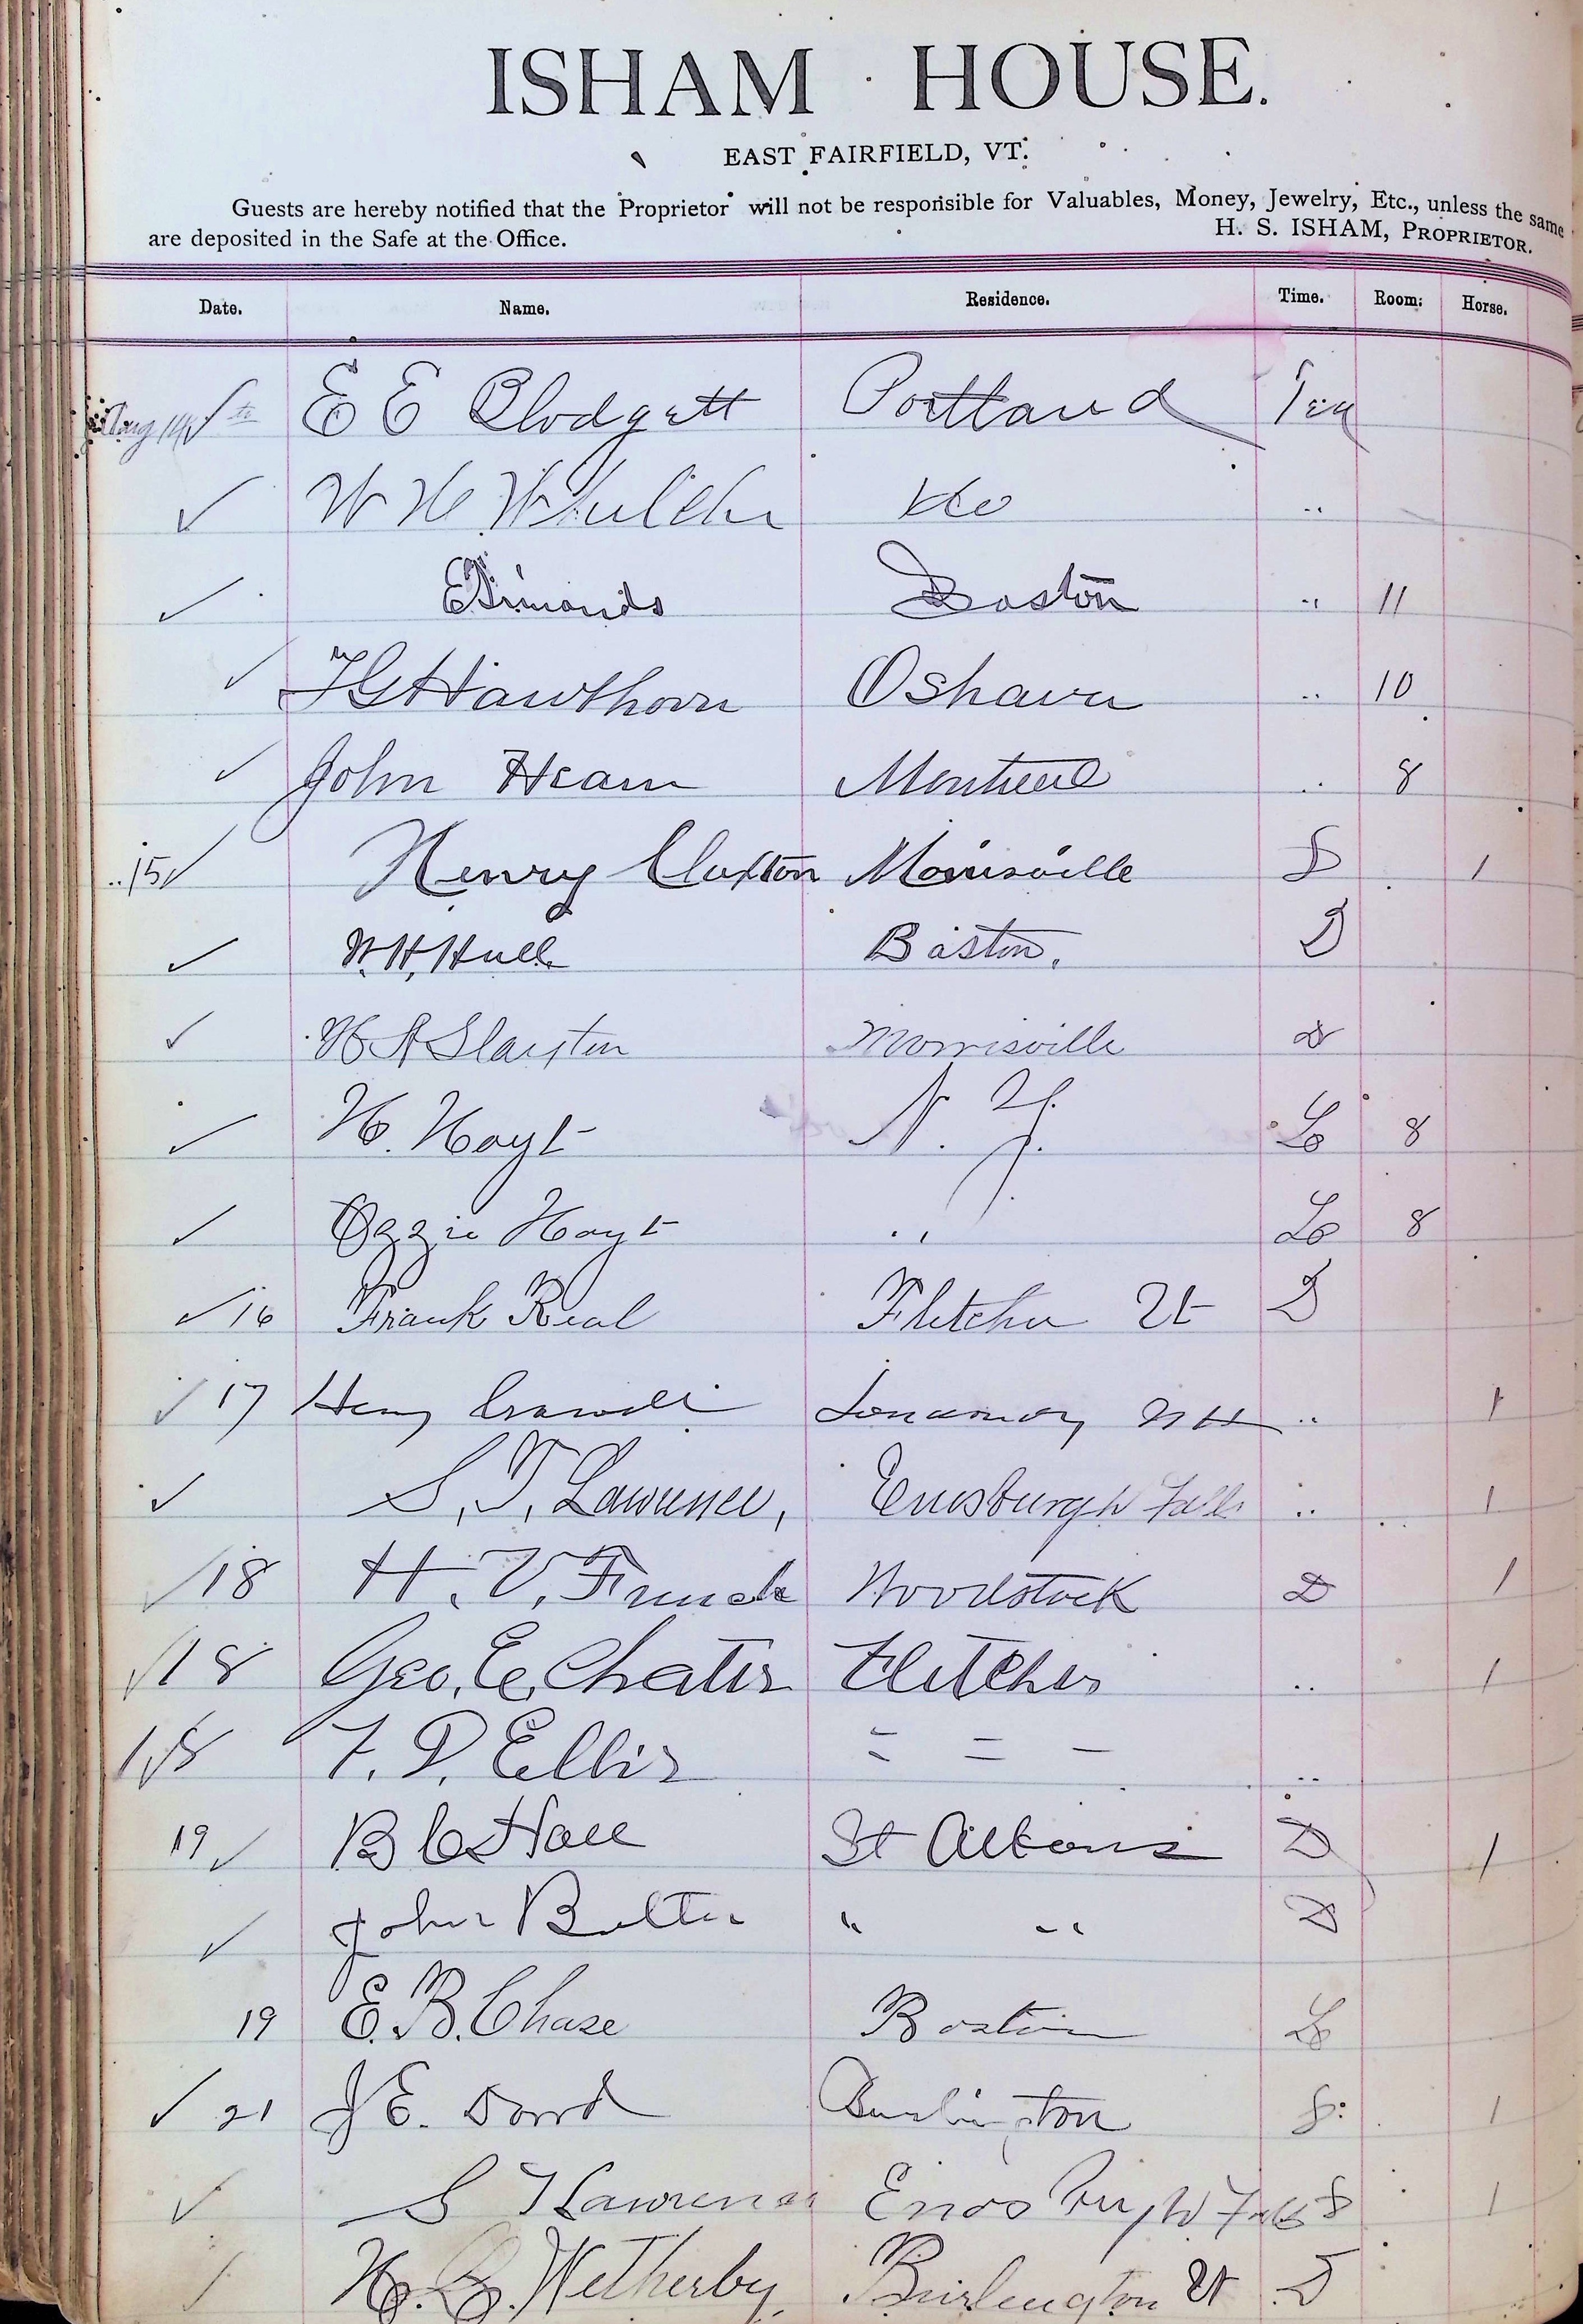 ISHAM HOUSE.
EAST FAIRFIELD, VT.
Guests are hereby notified that the Proprietor will not be responsible for Valuables, Money, Jewelry, Etc., unless the same
are deposited in the Safe at the Office.
H. S. ISHAM, PROPRIETOR.
Date. Name. Residence. Time. Room. Horse.
Aug 14 th E E Blodgett Portland Tea
W H do "
Boston " 11
Hawthorn Oshawa " 10
John Montreal " 8
" 15 Henry Morrisville 1
W. H. Hull Boston. D
H A Slayton Morrisville D
H. Hoyt N. Y. Lo 8
Ozzie Hoyt " Lo 8
16 Frank Real Fletcher Vt D
17 Henry N H " 1
S. T. Lawrence, Enosburgh Falls " 1
18 H. V. French Woodstock D 1
18 Geo. E. Fletcher " 1
18 F. D. Ellis = = - "
19 B C Hall St Albans D 1
John " " D
19 E. B. Chase Boston
21 J E. Dowd Burlington 1
S T Lawrence Enosburgh Falls 1
Wetherby, Burlington Vt